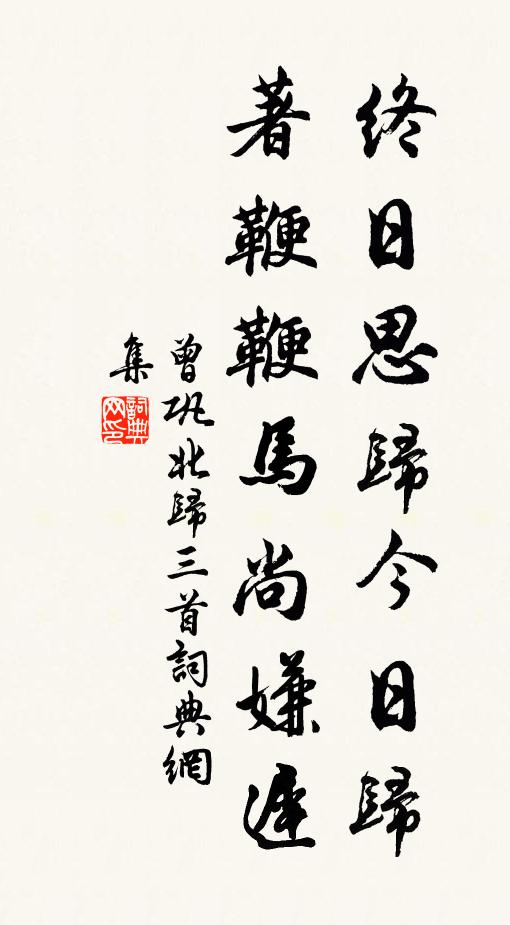 終日思歸今日歸
著鞭鞭馬尚嫌遲
曾巩北歸三首詞典網
集
詞典网印